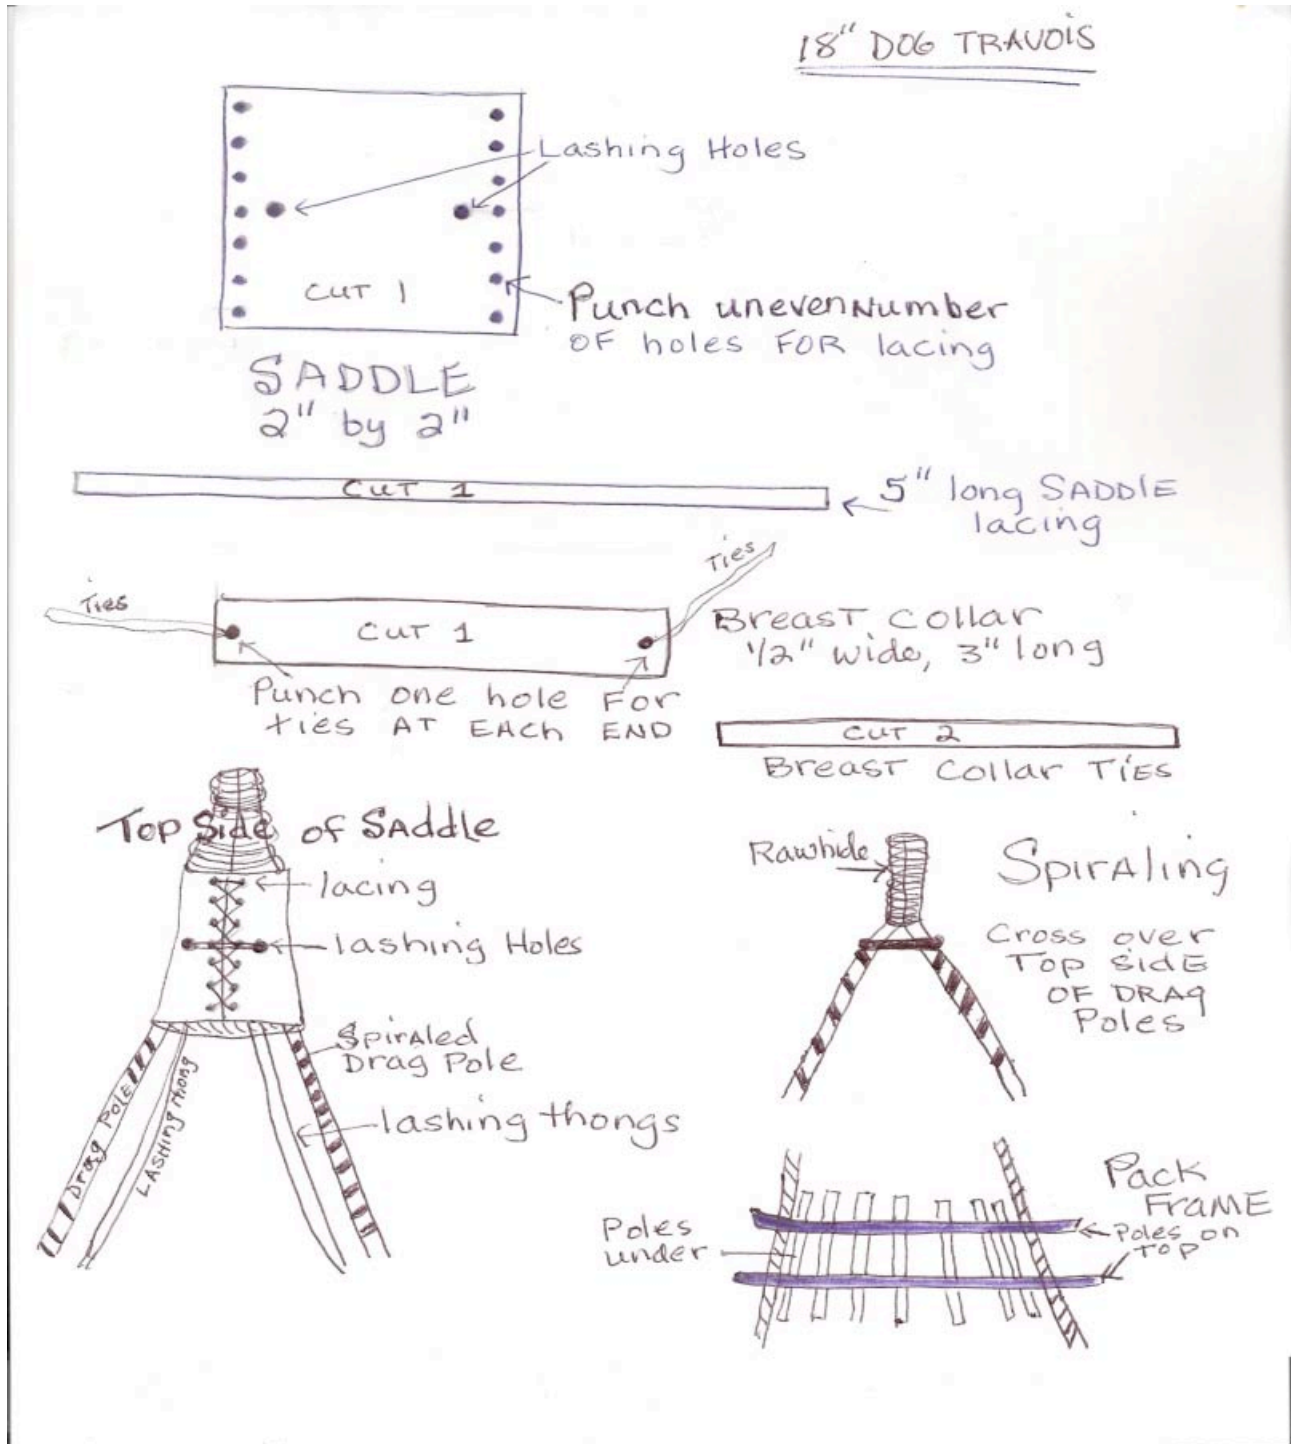 18" DOG TRAVOIS
Lashing Holes
CUT 1
Punch uneven Number
OF holes FOR lacing
SADDLE
2" by 2"
CUT 1
5" long SADDLE
lacing
Ties
Ties
CUT 1
Breast Collar
1/2" wide, 3" long
Punch one hole For
ties AT EACH END
CUT 2
Breast Collar Ties
Top Side of SAddle
lacing
lashing Holes
Spiraled
Drag Pole
Drag Pole
LAShing thong
lashing thongs
Rawhide
SpirAling
Cross over
Top side
OF DRAg
Poles
Pack
FrAME
Poles
under
Poles on
Top